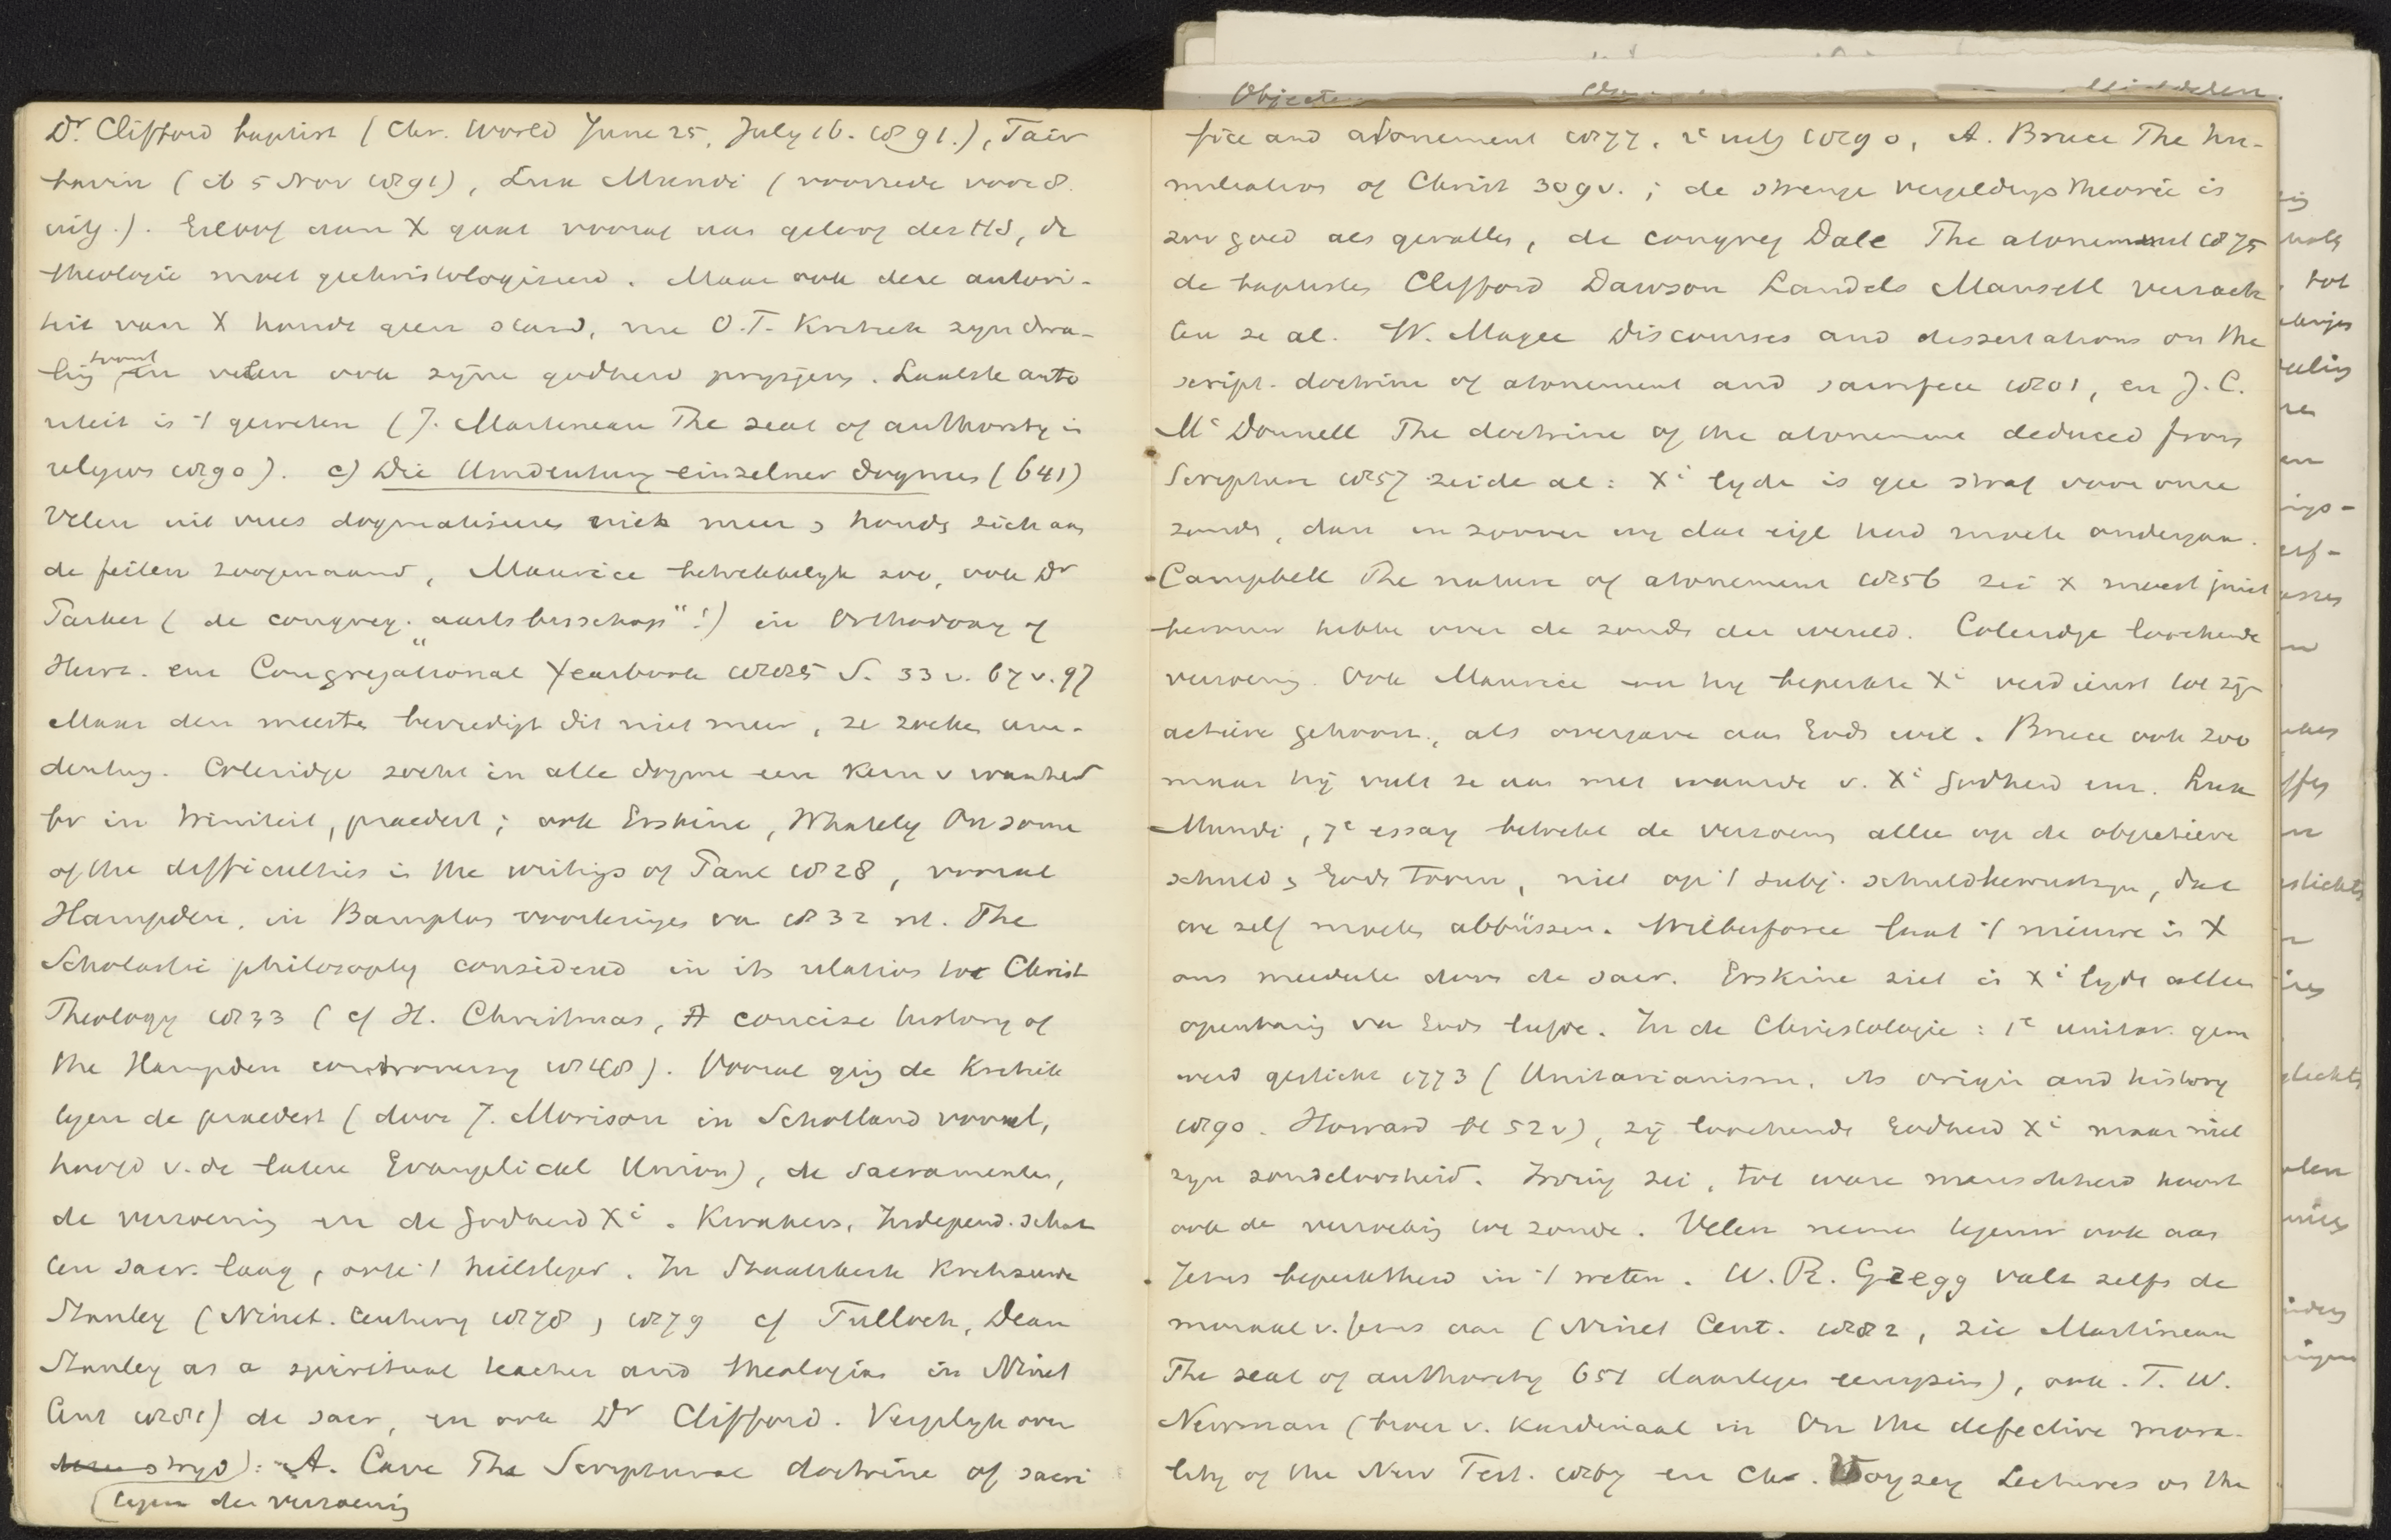 Dr. Clifford baptist (Chr. World June 25, July 16. 1891.), Fair
bairn (ib 5 Nov 1891), Lux Mundi (voorrede voor 8.
uitg.). Geloof aan X gaat vooraf aan geloof der HS, de
theologie moet gechristologiseerd. Maar ook deze autori-
teit van X houdt geen stand, nu O.T. Kritiek zijn dwa-
ling toont en velen ook zijne godheid prijsgeven. Laatste auto
riteit is 't geweten (J. Martineau The seat of authority in
religion 1890). c) Die Umdeutung einzelner dogmen (641)
Velen uit vrees dogmatiseren niet meer & houden zich aan
de feiten zoogenaamd, Maurice betrekkelijk zoo, ook Dr
Parker (de congreg. „aartsbisschop"!) in Orthodoxy of
Heart. en Congregational Yearbook 1885 S. 33 v. 67 v. 97
Maar den meesten bevredigt dit niet meer, ze zoeken um-
deutung. Coleridge zocht in alle dogma een kern v waarheid
bv in triniteit, praedest; ook Erskine, Whately On some
of the difficulties in the writings of Paul 1828, vooral
Hampden, in Bampton voorlezingen van 1832 nl. The
Scholastic philosophy considered in its relation to Christ
Theology 1833 (cf H. Christmas, A concise history of
the Hampden controversy 1848). Vooral ging de Kritiek
tegen de praedest (door J. Morison in Schotland vooral,
hoofd v. de latere Evangelical Union), de Sacramenten,
de verzoening en de Godheid Xi. Kwakers, Independ. schat
ten sacr. laag, ook 't heilsleger. In Staatskerk Kritiseerde
Stanley (Ninet. Century 1878, 1879 cf Tulloch, Dean
Stanley as a spiritual teacher and theologian in Ninet
Cent 1881) de sacr, en ook Dr Clifford. Vergelijk over
deze strijd): A. Cave The Scriptural doctrine of sacri
(tegen de verzoening
fice and atonement 1877, 2e uitg 1890, A. Bruce The hu-
miliation of Christ 309v.; de strenge vergeldingstheorie is
zoo goed als gevallen, de congreg Dale The atonement 1875
de baptisten Clifford Dawson Landels Mansell verzach
ten ze al. W. Magee Discourses and dissertations on the
script. doctrine of atonement and sacrifice 1801, en J. C.
Mc Donnell The doctrine of the atonement deduced from
Scripture 1857 zeide al: Xi lijden is geen straf voor onze
zonden, dan in zoover wij dat eigl had moeten ondergaan.
Campbell The nature of atonement 1856 zei X moest juist
berouw hebben over de zonden der wereld. Coleridge loochende
verzoening. Ook Maurice en hij beperkte Xi verdienst tot zijn
actieve gehoorz., als overgave aan Gods wil. Bruce ook zoo
maar hij vult ze aan met waarde v. Xi Godheid enz. Lux
Mundi, 7e essay betrekt de verzoening alleen op de objectieve
schuld & Gods toorn, niet op 't subj. schuldbewustzijn, dat
we zelf moeten abbüssen. Wilberforce laat 't nieuwe in X
ons meedeelen door de sacr. Erskine ziet in Xi lijden alleen
openbaring van Gods liefde. In de Christologie: 1e unitar. gem
werd gesticht 1773 (Unitarianism, its origin and history
1890. Howard bl 52v), zij loochende Godheid Xi maar niet
zijn zondeloosheid. Irving zei, tot ware menschheid hoort
ook de verzoeking tot zonde. Velen nemen tegenw ook aan
Jezus beperktheid in 't weten. W. R. Gregg valt zelfs de
moraal v. Jezus aan (Ninet Cent. 1882, zie Martineau
The seat of authority 651 daartegen eenigszins), ook F. W.
Newman (broer v. Kardinaal in On the defective mora-
lity of the New Test. 1867 en Ch. Voysey Lectures on the